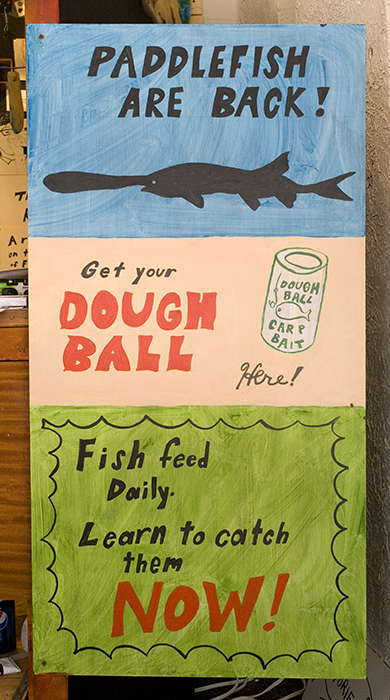 PADDLEFISH
ARE BACK!
Get your
DOUGH
BALL
DOUGH
BALL
CARP
BAIT
Here!
Fish feed
Daily.
Learn to catch
them
NOW!